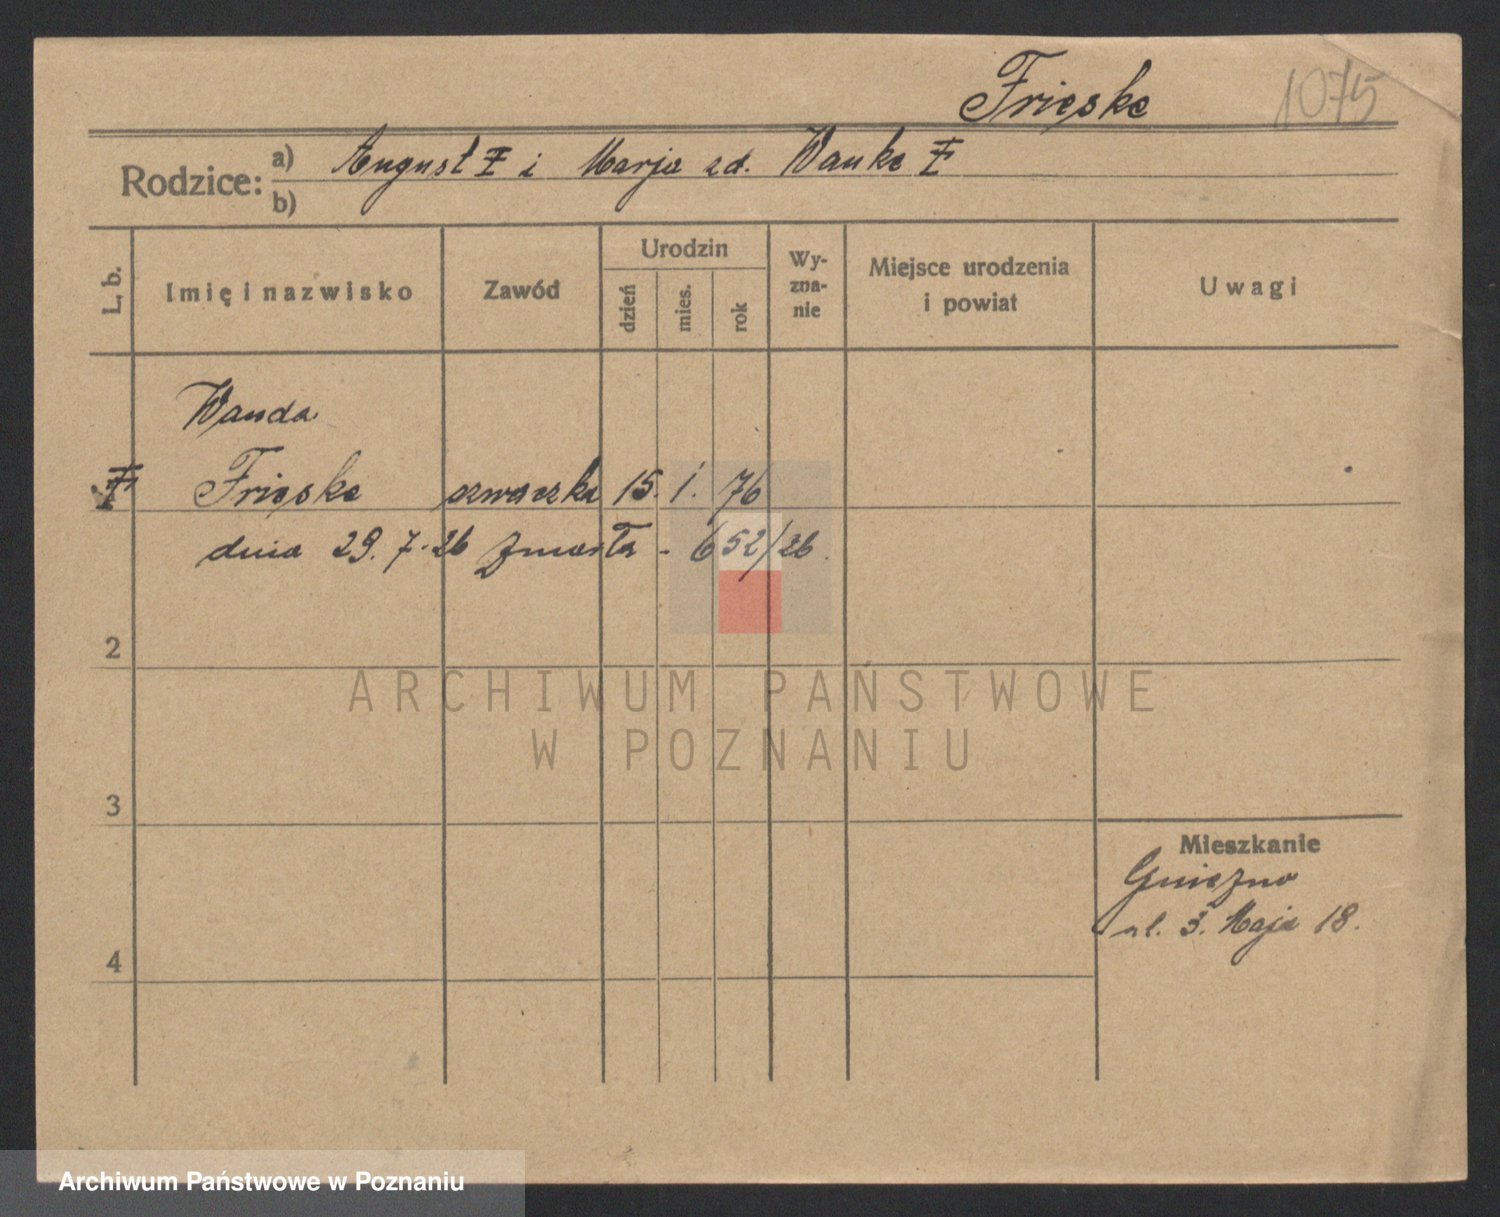 Frieske 1075
Rodzice: a) August ‡ i Marja zd. Wanke ‡
b)
L. b.
Imię i nazwisko
Zawód
Urodzin
dzień
mies.
rok
Wy-
zna-
nie
Miejsce urodzenia
i powiat
Uwagi
Wanda
‡ Frieske szwaczka 15. 1. 76
dnia 29. 7. 26 zmarła - 652/26.
2
ARCHIWUM PAŃSTWOWE
W POZNANIU
3
Mieszkanie
Gniezno
ul. 3. Maja 18.
4
Archiwum Państwowe w Poznaniu